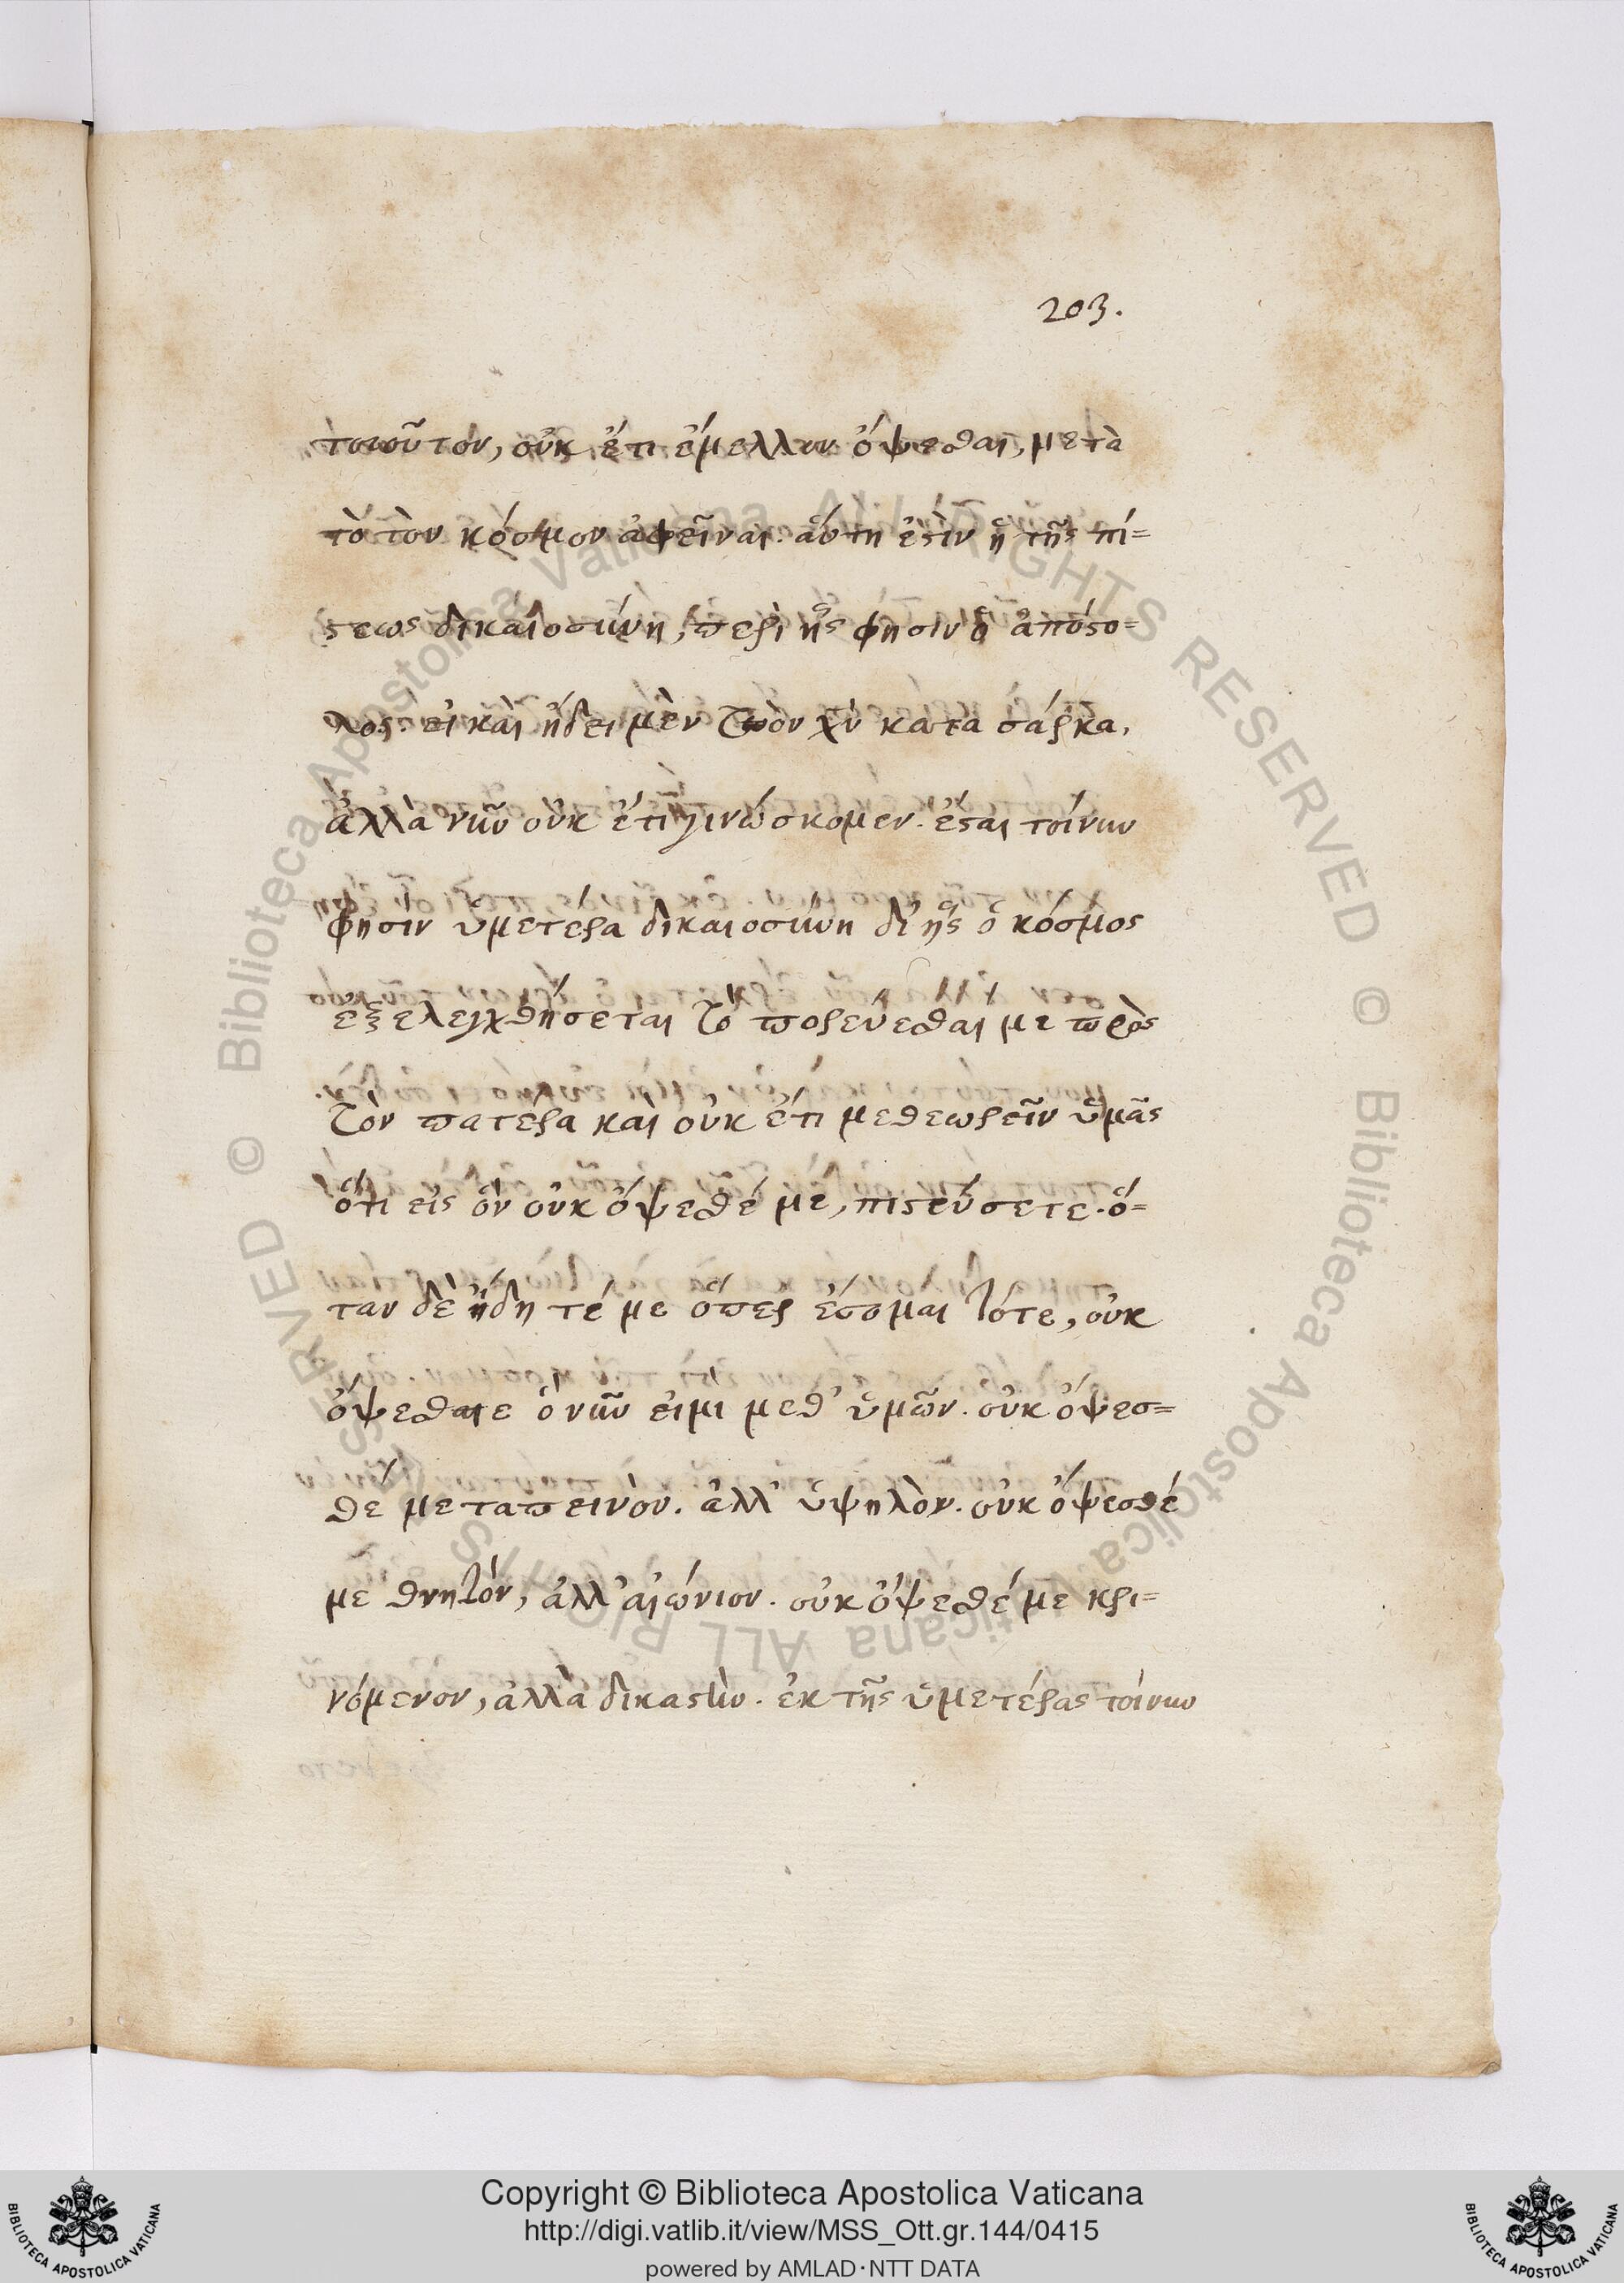 203.
τοιοῦτον, οὐκ ἔτι ἔμελλον ὄψεσθαι, μετὰ
τὸ τὸν κόσμον ἀφεῖναι. αὕτη ἐστὶν ἡ τῆς πί=
στεως δικαιοσύνη, περὶ ἧς φησιν ὁ ἀπόστο=
λος. εἰ καὶ ἤδει μὲν τὸν χν κατα σάρκα,
ἀλλὰ νῦν οὐκ ἔτι γινώσκομεν. ἔσται τοίνυν
φησὶν ὑμετέρα δικαιοσύνη δι' ἧς ὁ κόσμος
ἐξελεγχθήσεται τὸ πορεύεσθαι με πρὸς
τὸν πατέρα καὶ οὐκ ἔτι με θεωρεῖν ὑμᾶς
ὅτι εἰς ὃν οὐκ ὄψεσθέ με, πιστεύσετε. ὅ=
ταν δὲ ἤδη τέ με ὅπερ ἔσομαι τότε, οὐκ
ὄψεσθαι ε ὃ νῦν εἰμι μεθ' ὑμῶν. οὐκ ὄψεσ=
θέ με ταπεινόν. ἀλλ' ὑψηλὸν. οὐκ ὄψεσθέ
με θνητόν, ἀλλ' αἰώνιον. οὐκ ὄψεσθέ με κρι=
νόμενον, ἀλλὰ δικαστὴν. ἐκ τῆς ὑμετέρας τοίνυν
Copyright © Biblioteca Apostolica Vaticana
http://digi.vatlib.it/view/MSS_Ott.gr.144/0415
powered by AMLAD·NTT DATA
BIBLIOTECA APOSTOLICA VATICANA
BIBLIOTECA APOSTOLICA VATICANA
© Biblioteca Apostolica Vaticana ALL RIGHTS RESERVED © Biblioteca Apostolica Vaticana ALL RIGHTS RESERVED